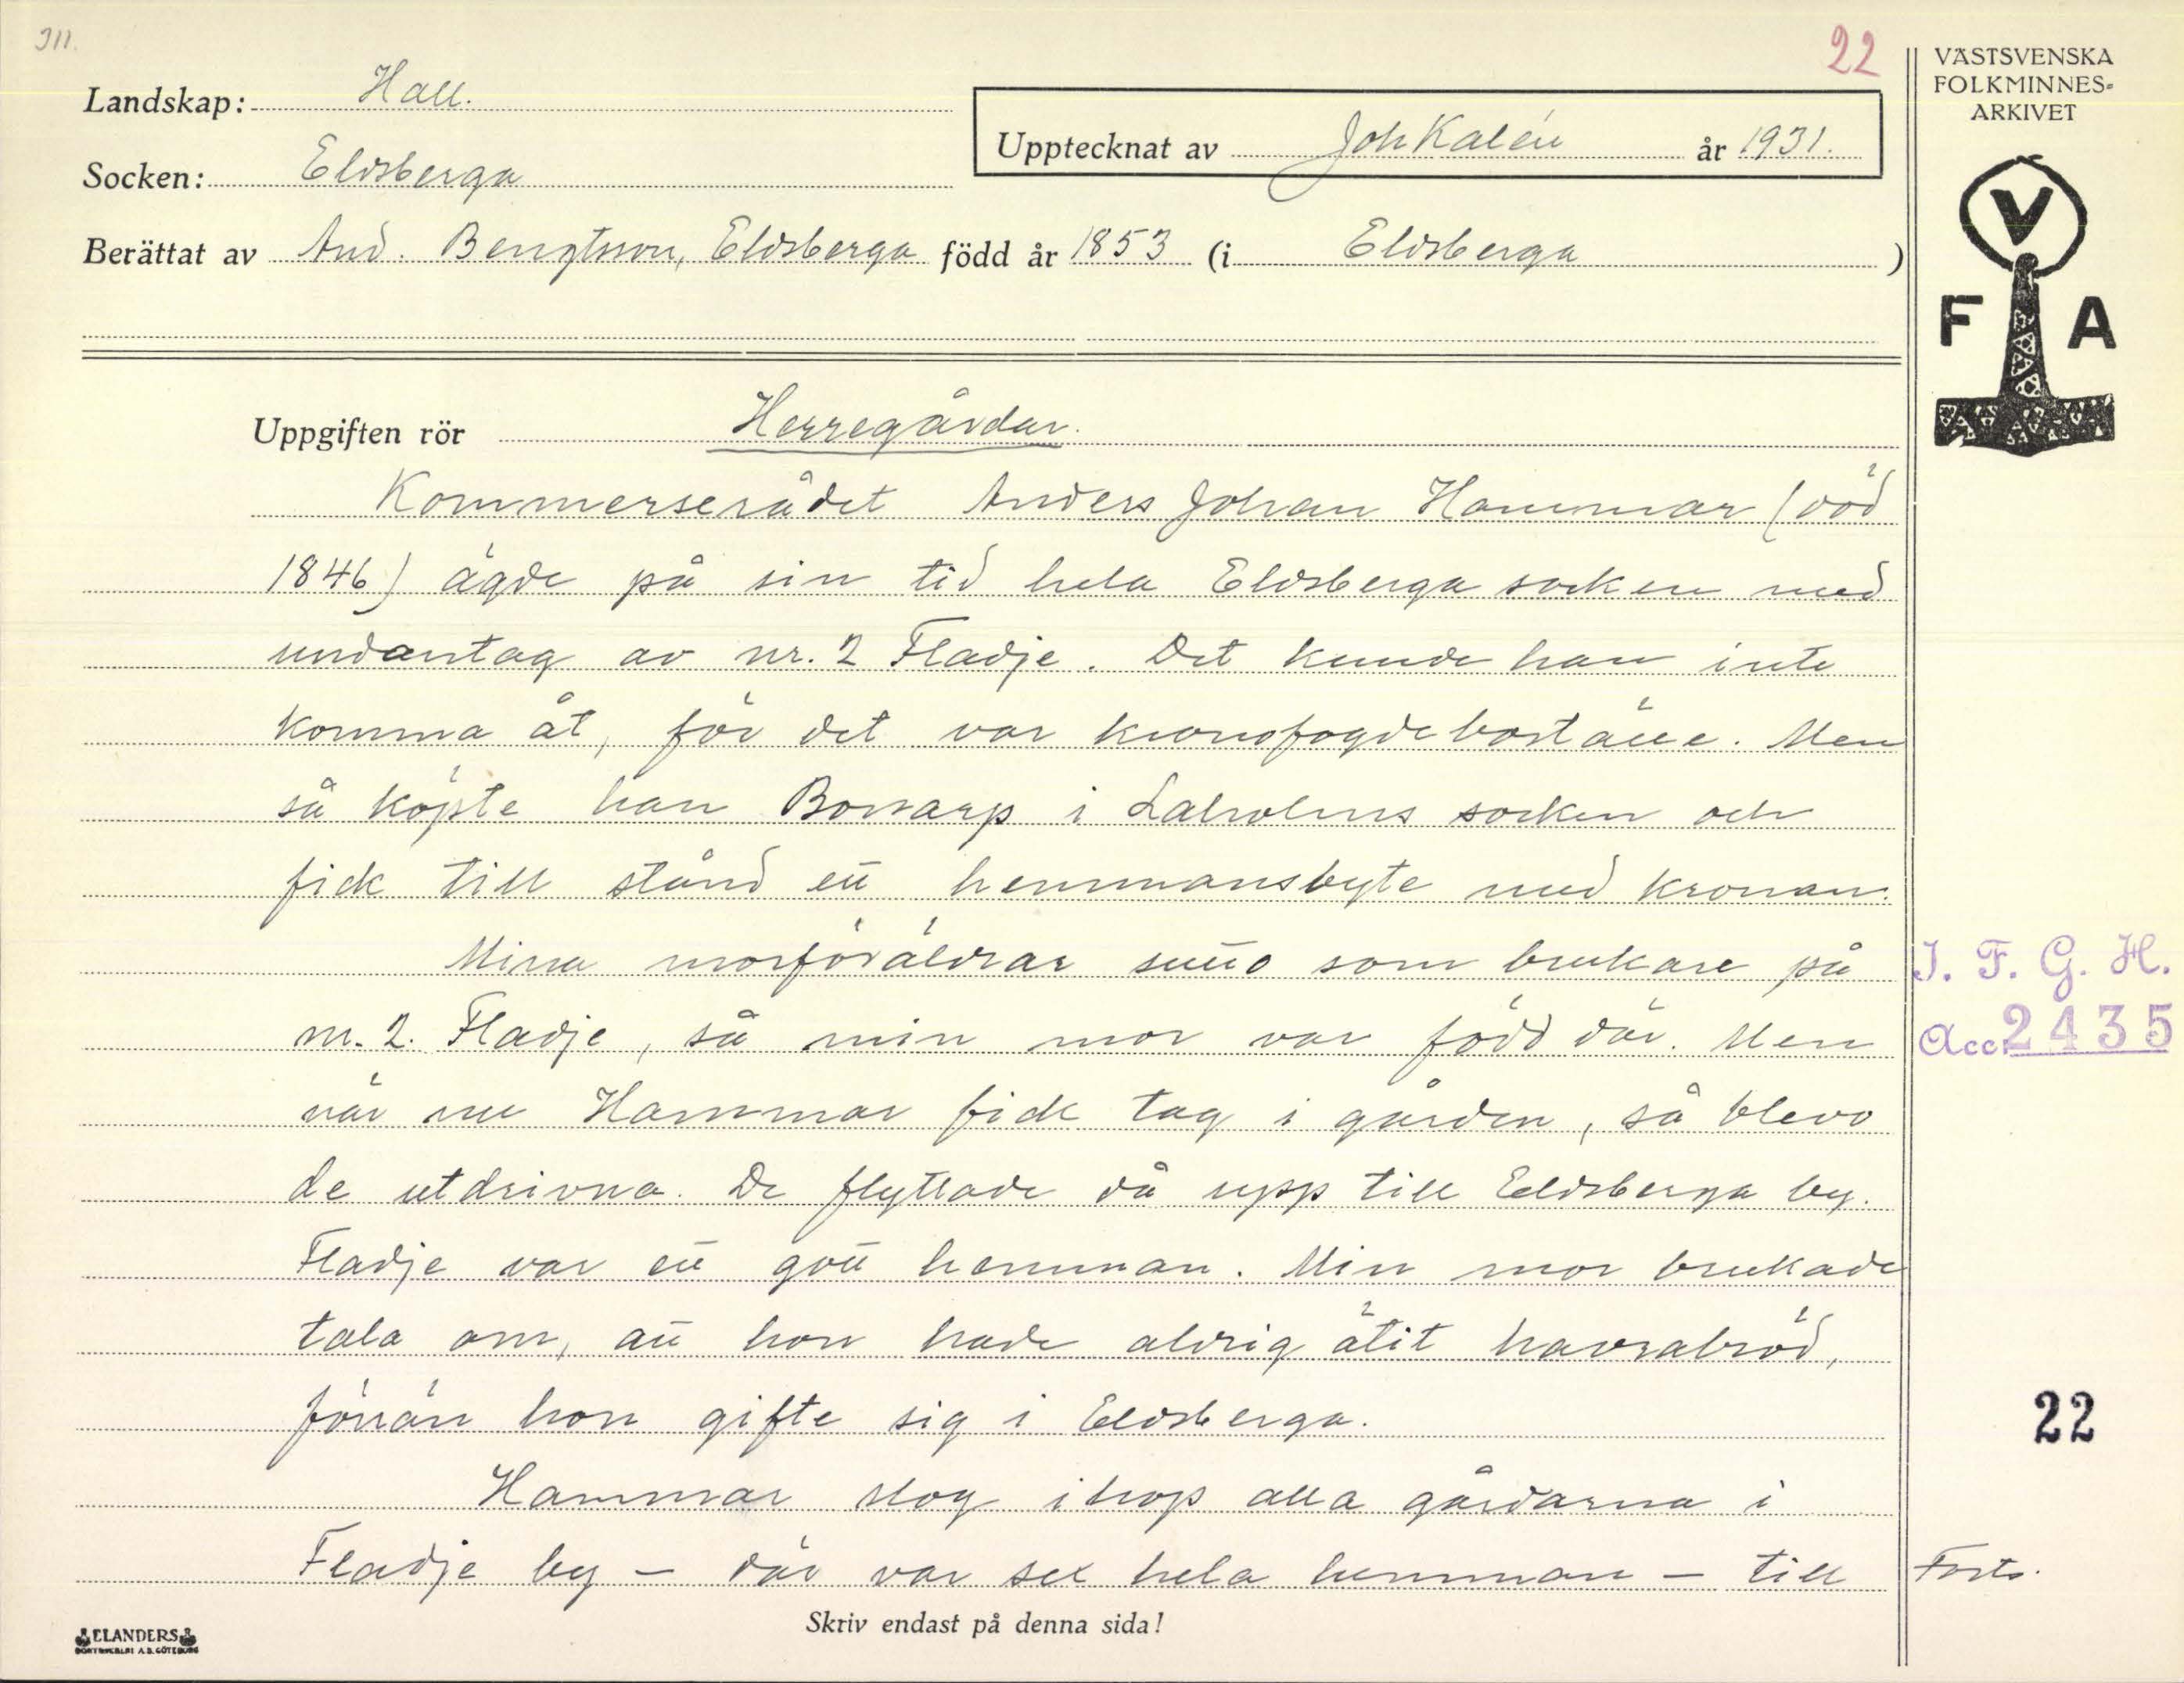 311.
22
Landskap: Hall.
Upptecknat av Joh Kalén år 1931.
Socken: Eldsberga
Berättat av And. Bengtsson, Eldsberga född år 1853 (i Eldsberga)
VÄSTSVENSKA
FOLKMINNES-
ARKIVET
V
F A
Uppgiften rör Herregårdar.
Kommerserådet Anders Johan Hammar (död
1846) ägde på sin tid hela Eldsberga socken med
undantag av nr. 2 Fladje. Det kunde han inte
komma åt, för det var kronofogdeboställe. Men
så köpte han Bossarp i Laholms socken och
fick till stånd ett hemmansbyte med kronan.
Mina morföräldrar sutto som brukare på
nr. 2. Fladje, så min mor var född där. Men
när nu Hammar fick tag i gården, så blevo
de utdrivna. De flyttade då upp till Eldsberga by.
Fladje var ett gott hemman. Min mor brukade
tala om, att hon hade aldrig ätit havrabröd,
förrän hon gifte sig i Eldsberga.
Hammar slog ihop alla gårdarna i
Fladje by – där var sex hela hemman – till
I. F. G. H.
Acc. 2435
22
Forts.
Skriv endast på denna sida!
ELANDERS
BOKTRYCKERI A.B. GÖTEBORG